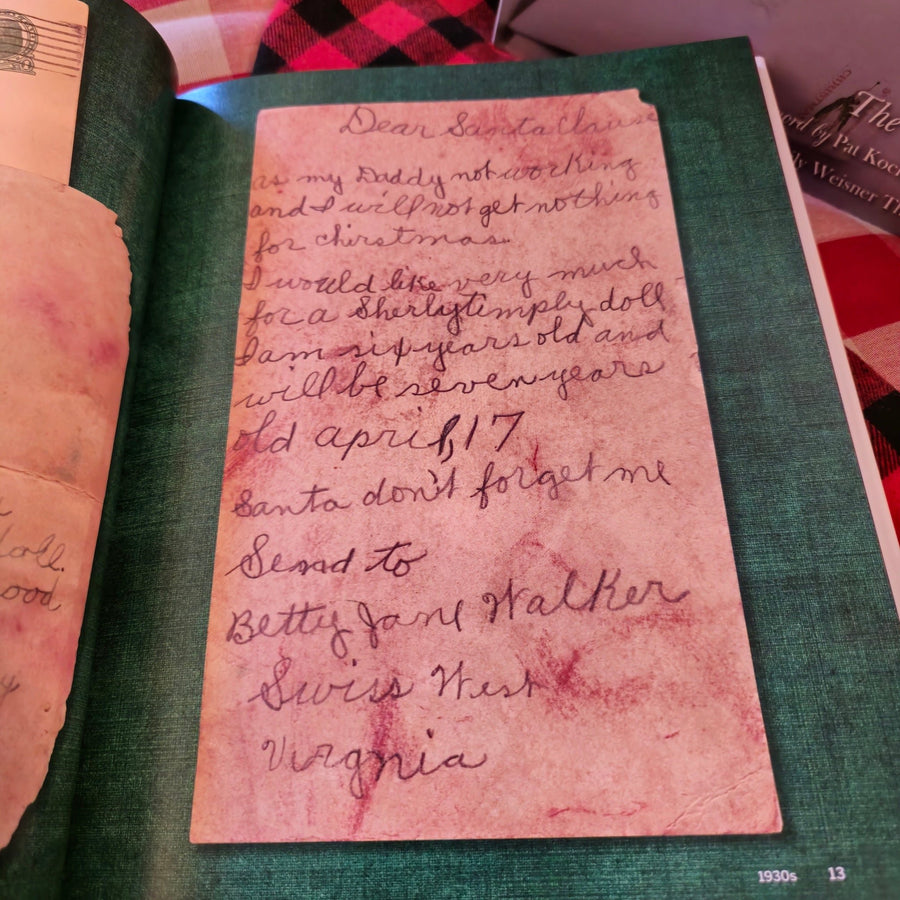 Dear Santa Clause
as my Daddy not working
and I will not get nothing
for chirstmas.
I would like very much
for a Sherlytemply doll
I am six years old and
will be seven years
old april, 17
Santa don't forget me
Send to
Betty Jane Walker
Swiss West
Virgnia
1930s 13
ood
The
by Pat Koch
Weisner